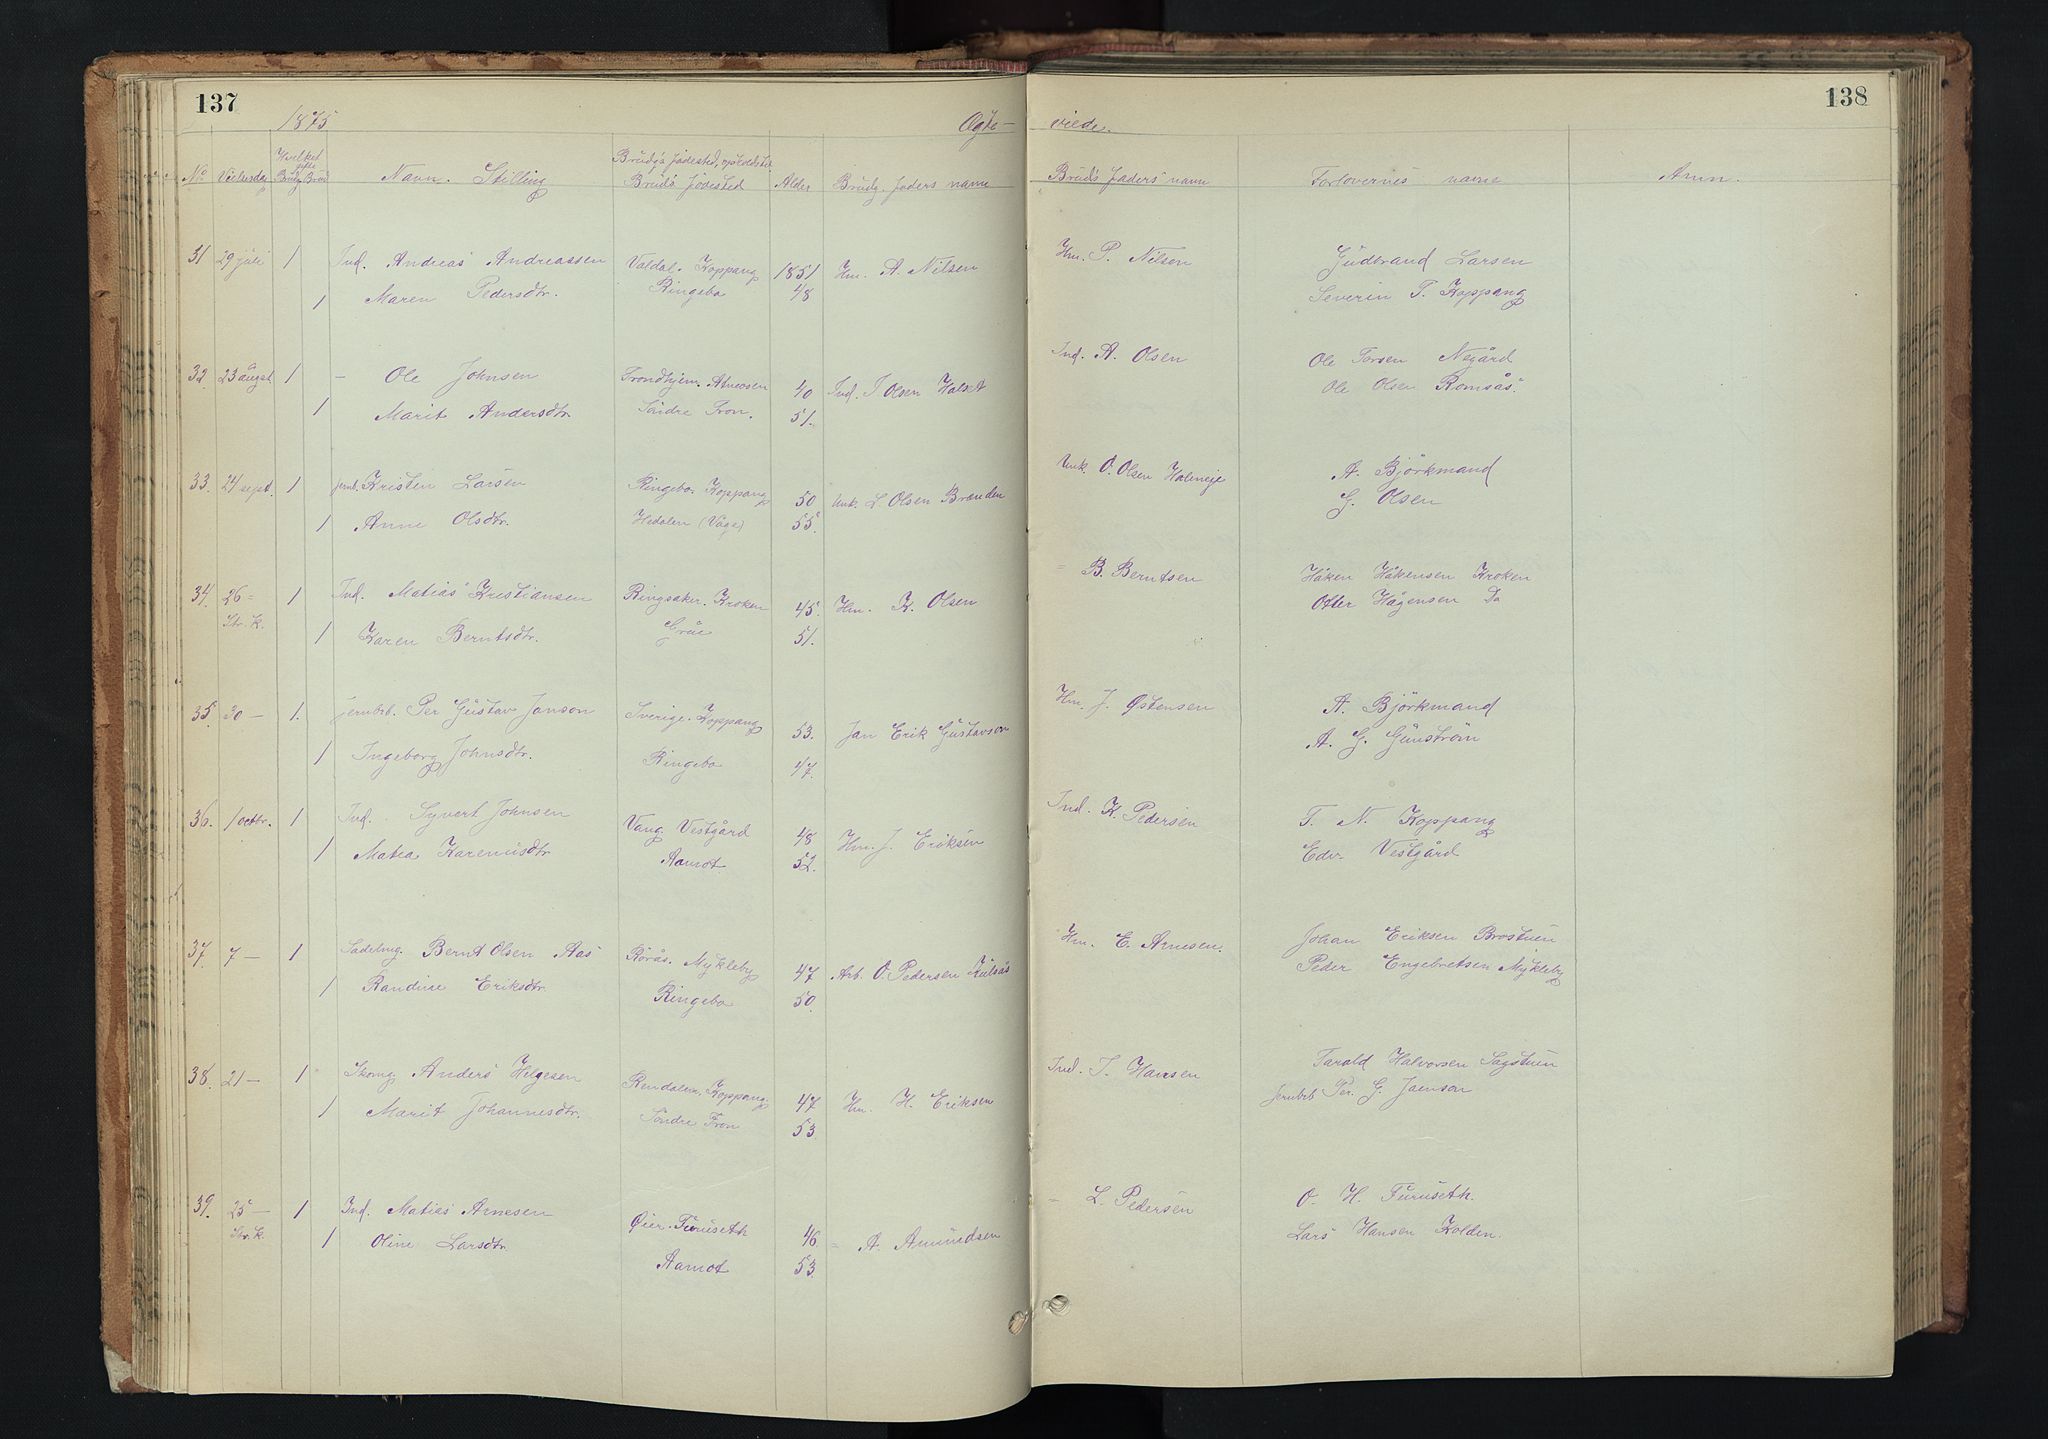 137
138
1875
Ægte-
viede.
No Vielsesdag Hvilket gifte Brudg Brud Navn. Stilling Brudg's födested, opholdsted Bruds födested Alder Brudg. faders navn Bruds faders navn Forlovernes navne Anm.
31 29 juli 1 Ind. Andreas Andreassen Valdal. Koppang 1851 Hm. A. Nilsen Hm. P. Nilsen Gudbrand Larsen
1 Maren Pedersdtr. Ringebo 48 Severin T. Koppang
32 23 augst. 1 - Ole Johnsen Trondhjem. Atneosen 40 Ind. J Olsen Halset Ind. A. Olsen Ole Torsen Negård
1 Marit Andersdtr. Söndre Fron. 51. Ole Olsen Romsås.
33. 24 sept. 1 jernb. Kristen Larsen Ringebo. Koppang 50 Unk. L. Olsen Brænden Unk. O. Olsen A. Björkmand
1 Anne Olsdtr. Hedalen (Våge) 55. G. Olsen
34. 26 = 1 Ind. Matias Kristiansen Ringsaker. Kroken 45. Hm. K. Olsen = B. Berntsen Håken Håkensen Kroken
Str. k. 1 Karen Berntsdtr. Grue 51. Otter Hågensen Do
35. 30 - 1. jernbb. Per Gustav Janson Sverige. Koppang 53. Jan Erik Gustavson Hm. J. Østensen A. Björkmand
1 Ingeborg Johnsdtr. Ringebo 47. A. G. Gunström
36. 1 octbr. 1 Ind. Syvert Johnsen Vang. Vestgård 48 Hm. J. Eriksen Ind. K. Pedersen T. N. Koppang
1 Matea Karenusdtr Aamot 52. Edv. Vestgård
37. 7 - 1 Sadelmg. Bernt Olsen Aas Rörås. Mykleby 47 Arb. O. Pedersen Hm. E. Arnesen. Johan Eriksen Brostuen
1 Randine Eriksdtr. Ringebo 50. Peder Engebretsen Mykleby
38. 21 - 1 Skomg Anders Helgesen Rendalen. Koppang. 47 Hm. H. Eriksen Ind. J. Hansen Tarald Halvorsen Sagstuen
1 Marit Johannesdtr. Söndre Fron 53. jernbb Per. G. Janson
39. 25 - 1 Ind. Matias Arnesen Øier. Furuseth 46. = A. Amundsen = L. Pedersen O. H. Furuseth.
Str. k. 1 Oline Larsdtr. Aamot 53. Lars Hansen Kolden.